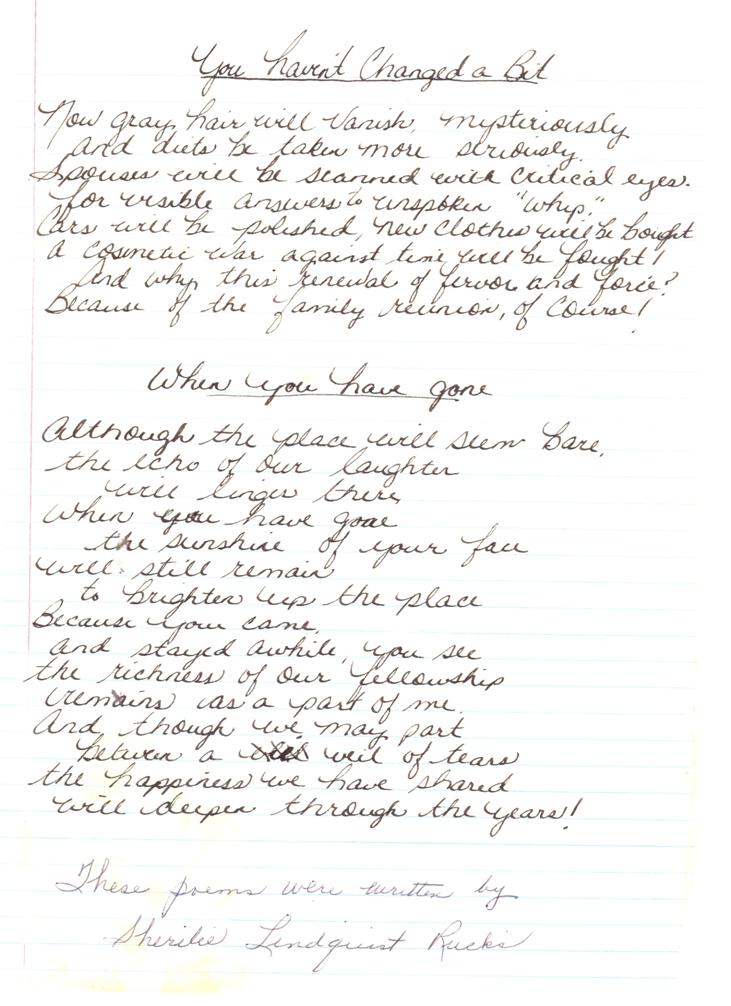 You haven't Changed a Bit
Now gray hair will Vanish, mysteriously
And diets be taken more seriously.
Spouses will be scanned with critical eyes.
for visible answers to unspoken "whys."
Cars will be polished, new clothes will be bought
a cosmetic war against time will be fought!
And why this renewal of fervor and force?
Because of the family reunion, of course!
When you have gone
Although the place will seem bare,
the echo of our laughter
will linger there
When you have gone
the sunshine of your face
will still remain
to brighten up the place
Because you came,
and stayed awhile, you see
the richness of our fellowship
remains as a part of me.
And though we may part
between a veil of tears
the happiness we have shared
will deepen through the years!
These poems were written by
Sherilie Lindquist Rucks